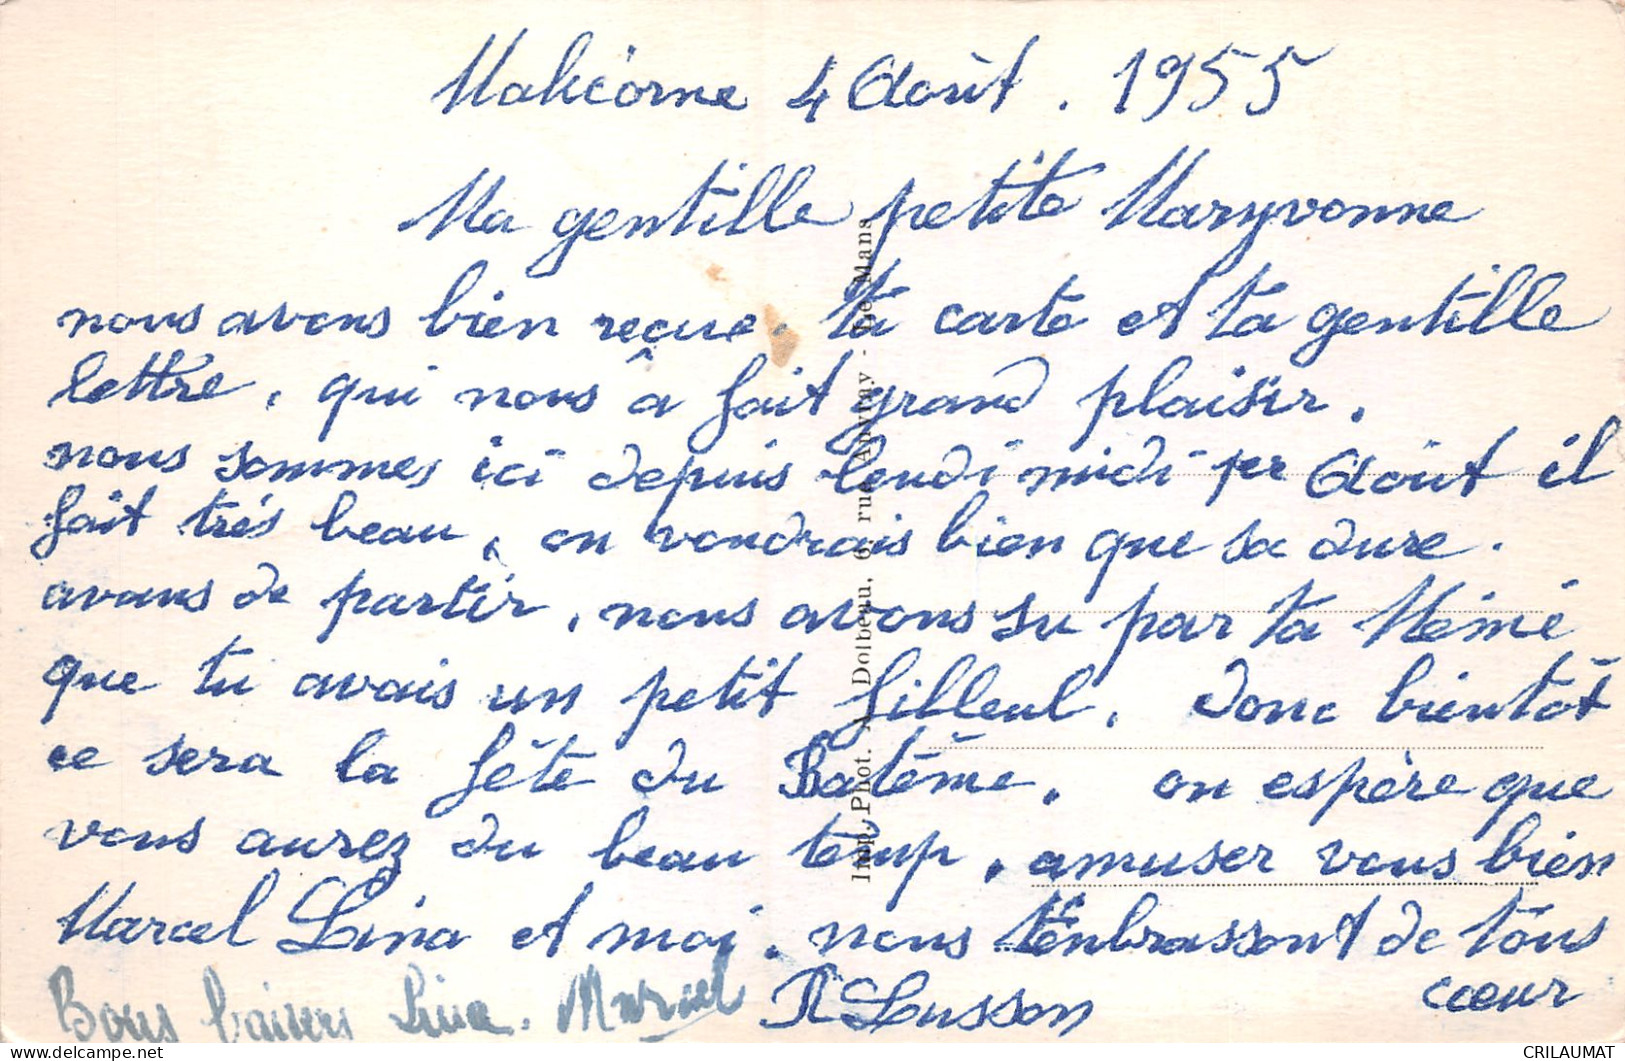 Malicorne 4 Août . 1955
Ma gentille petite Maryvonne
nous avons bien reçue, ta carte et ta gentille
lettre, qui nous â fait grand plaisir.
nous sommes ici depuis lundi midi 1er Août il
fait trés beau, on voudrais bien que sa dure.
avans de partir, nous avons su par ta Mémé
que tu avais un petit filleul, donc bientôt
ce sera la fête du Batême, on espère que
vous aurez du beau temp, amuser vous bien
Marcel Lina et moi, nous t'enbrassont de tous
cœur
Bons baisers Lina. Marcel R Lusson
Imp. Phot. A. Dolbeau, 6, rue Auvray - Le Mans
CRILAUMAT